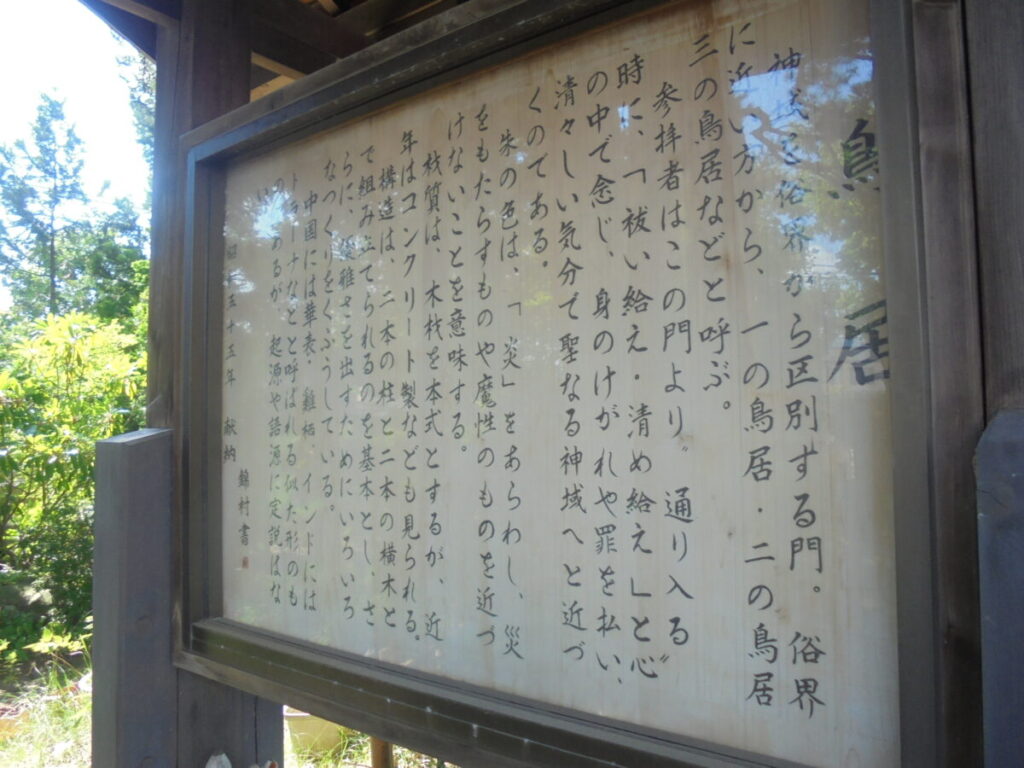 鳥居
神式を俗界から区別する門。俗界
に近い方から、一の鳥居・二の鳥居
三の鳥居などと呼ぶ。
参拝者はこの門より〝通り入る〟
時に、「祓い給え・清め給え」と心
の中で念じ、身のけがれや罪を払い、
清々しい気分で聖なる神域へと近づ
くのである。
朱の色は、「炎」をあらわし、災
をもたらすものや魔性のものを近づ
けないことを意味する。
材質は、木材を本式とするが、近
年はコンクリート製なども見られる。
構造は、二本の柱と二本の横木と
で組み立てられるのを基本とし、さ
らに、優雅さを出すためにいろいろ
なつくりをくふうしている。
中国には華表・鶏栖、インドには
トラーナなどと呼ばれる似た形のも
のがあるが、起源や語源に定説はな
い。
昭和五十五年 献納
錦村書